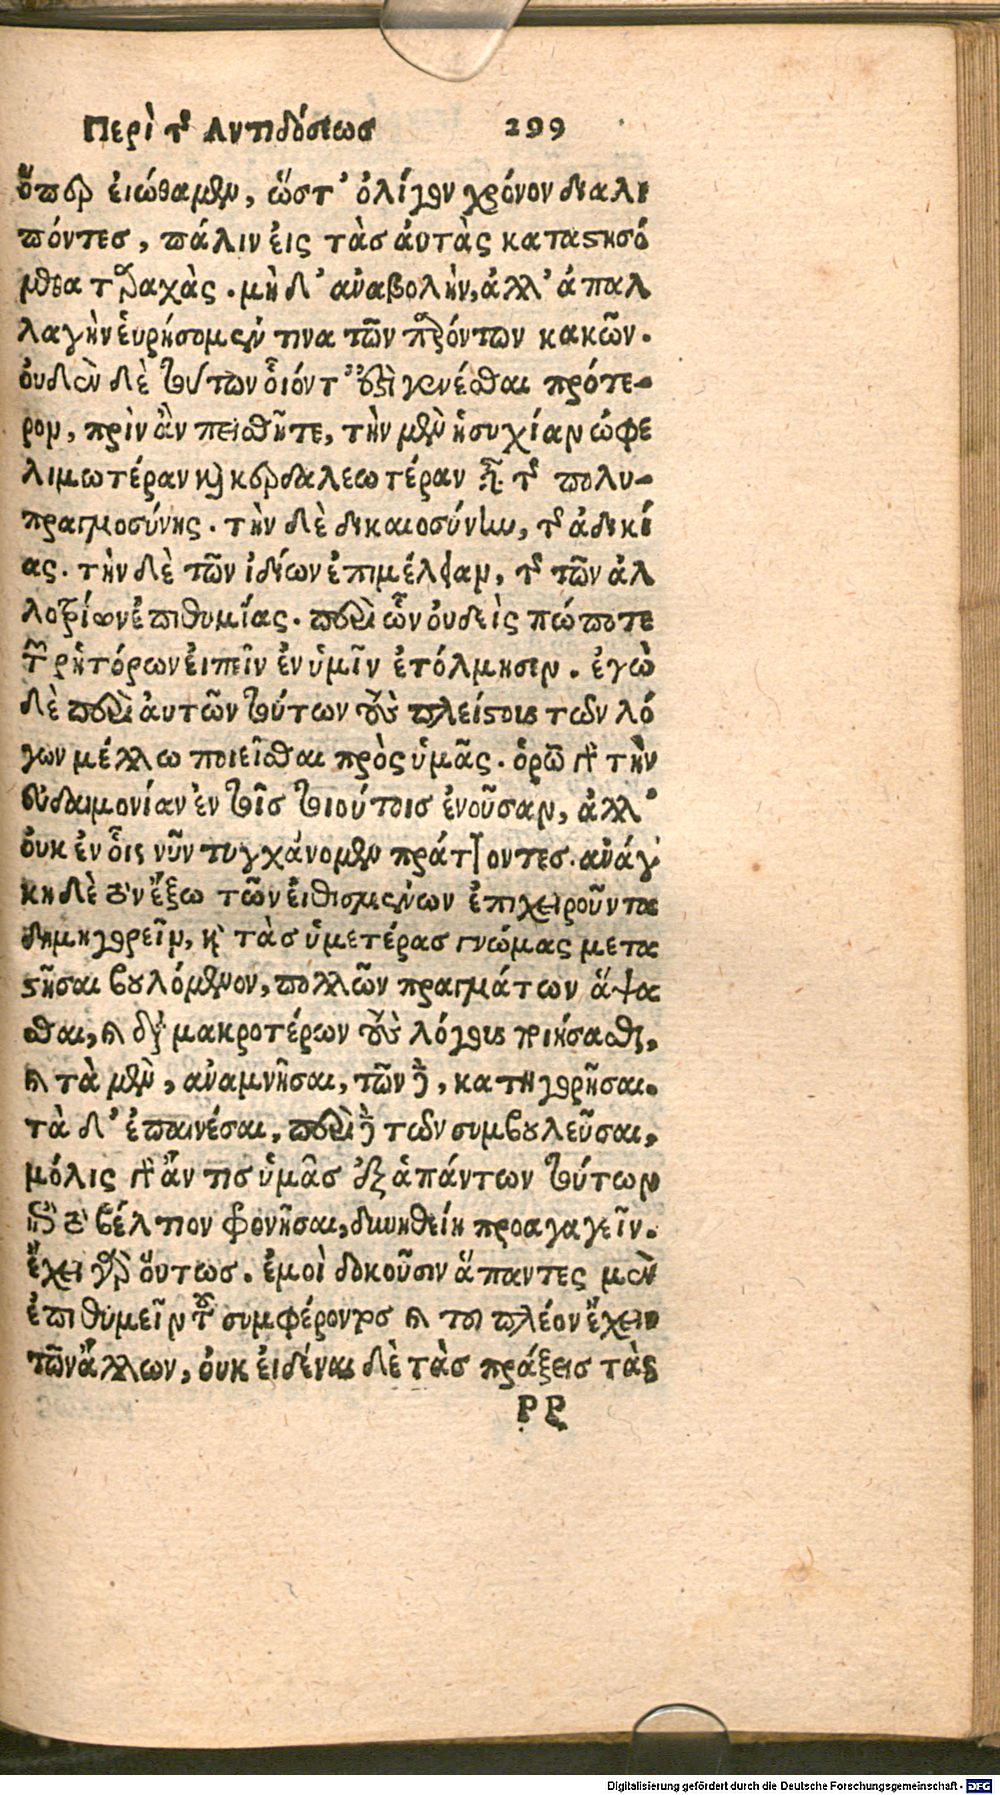 Περὶ τῆς Ἀντιδόσεως 299
ὅπερ εἰώθαμεν, ὥστ' ὀλίγον χρόνον διαλι
πόντες, πάλιν εἰς τὰς ἀυτὰς καταστησό
μεθα ταραχάς. μὴ δ' ἀναβολὴν, ἀλλ' ἀπαλ
λαγὴν ἑυρήσομεν τινα τῶν παρόντων κακῶν.
ὀυδὲν δὲ τούτων οἷόν τ' ἐστὶ γενέσθαι πρότε-
ρον, πρὶν ἂν πεισθῆτε, τὴν μὲν ἡσυχίαν ὠφε
λιμωτέραν καὶ κερδαλεωτέραν εἶναι τῆς πολυ-
πραγμοσύνης. τὴν δὲ δικαιοσύνην, τῆς ἀδικί
ας. τὴν δὲ τῶν ἰδίων ἐπιμέλειαν, τῆς τῶν ἀλ
λοτρίων ἐπιθυμίας. περὶ ὧν ὀυδεὶς πώποτε
τῶν ῥητόρων ἐιπεῖν ἐν ὑμῖν ἐτόλμησεν. ἐγὼ
δὲ περὶ ἀυτῶν τούτων τοὺς πλείστους τῶν λό
γων μέλλω ποιεῖσθαι πρὸς ὑμᾶς. ὁρῶ γὰρ τὴν
ἐυδαιμονίαν ἐν τοῖς τοιούτοις ἐνοῦσαν, ἀλλ'
ὀυκ ἐν οἷς νῦν τυγχάνομεν πράττοντες. ἀνάγ
κη δὲ τὸν ἔξω τῶν ἐιθισμένων ἐπιχειροῦντα
δημηγορεῖν, καὶ τὰς ὑμετέρας γνώμας μετα
στῆσαι βουλόμενον, πολλῶν πραγμάτων ἅψα
σθαι, καὶ διὰ μακροτέρων τοὺς λόγους ποιήσασθαι,
καὶ τὰ μὲν, ἀναμνῆσαι, τῶν δὲ, κατηγορῆσαι.
τὰ δ' ἐπαινέσαι, περὶ δὲ τῶν συμβουλεῦσαι,
μόλις γὰρ ἄν τις ὑμᾶς ἐξ ἁπάντων τούτων
ἐπὶ τὸ βέλτιον φρονῆσαι, δυνηθείη προαγαγεῖν.
ἔχει γὰρ ὅυτως. ἐμοὶ δοκοῦσιν ἅπαντες μὲν
ἐπιθυμεῖν τοῦ συμφέροντος καὶ τοῦ πλέον ἔχειν
τῶν ἄλλων, ὀυκ ἐιδέναι δὲ τὰς πράξεις τὰς
PP
Digitalisierung gefördert durch die Deutsche Forschungsgemeinschaft - DFG